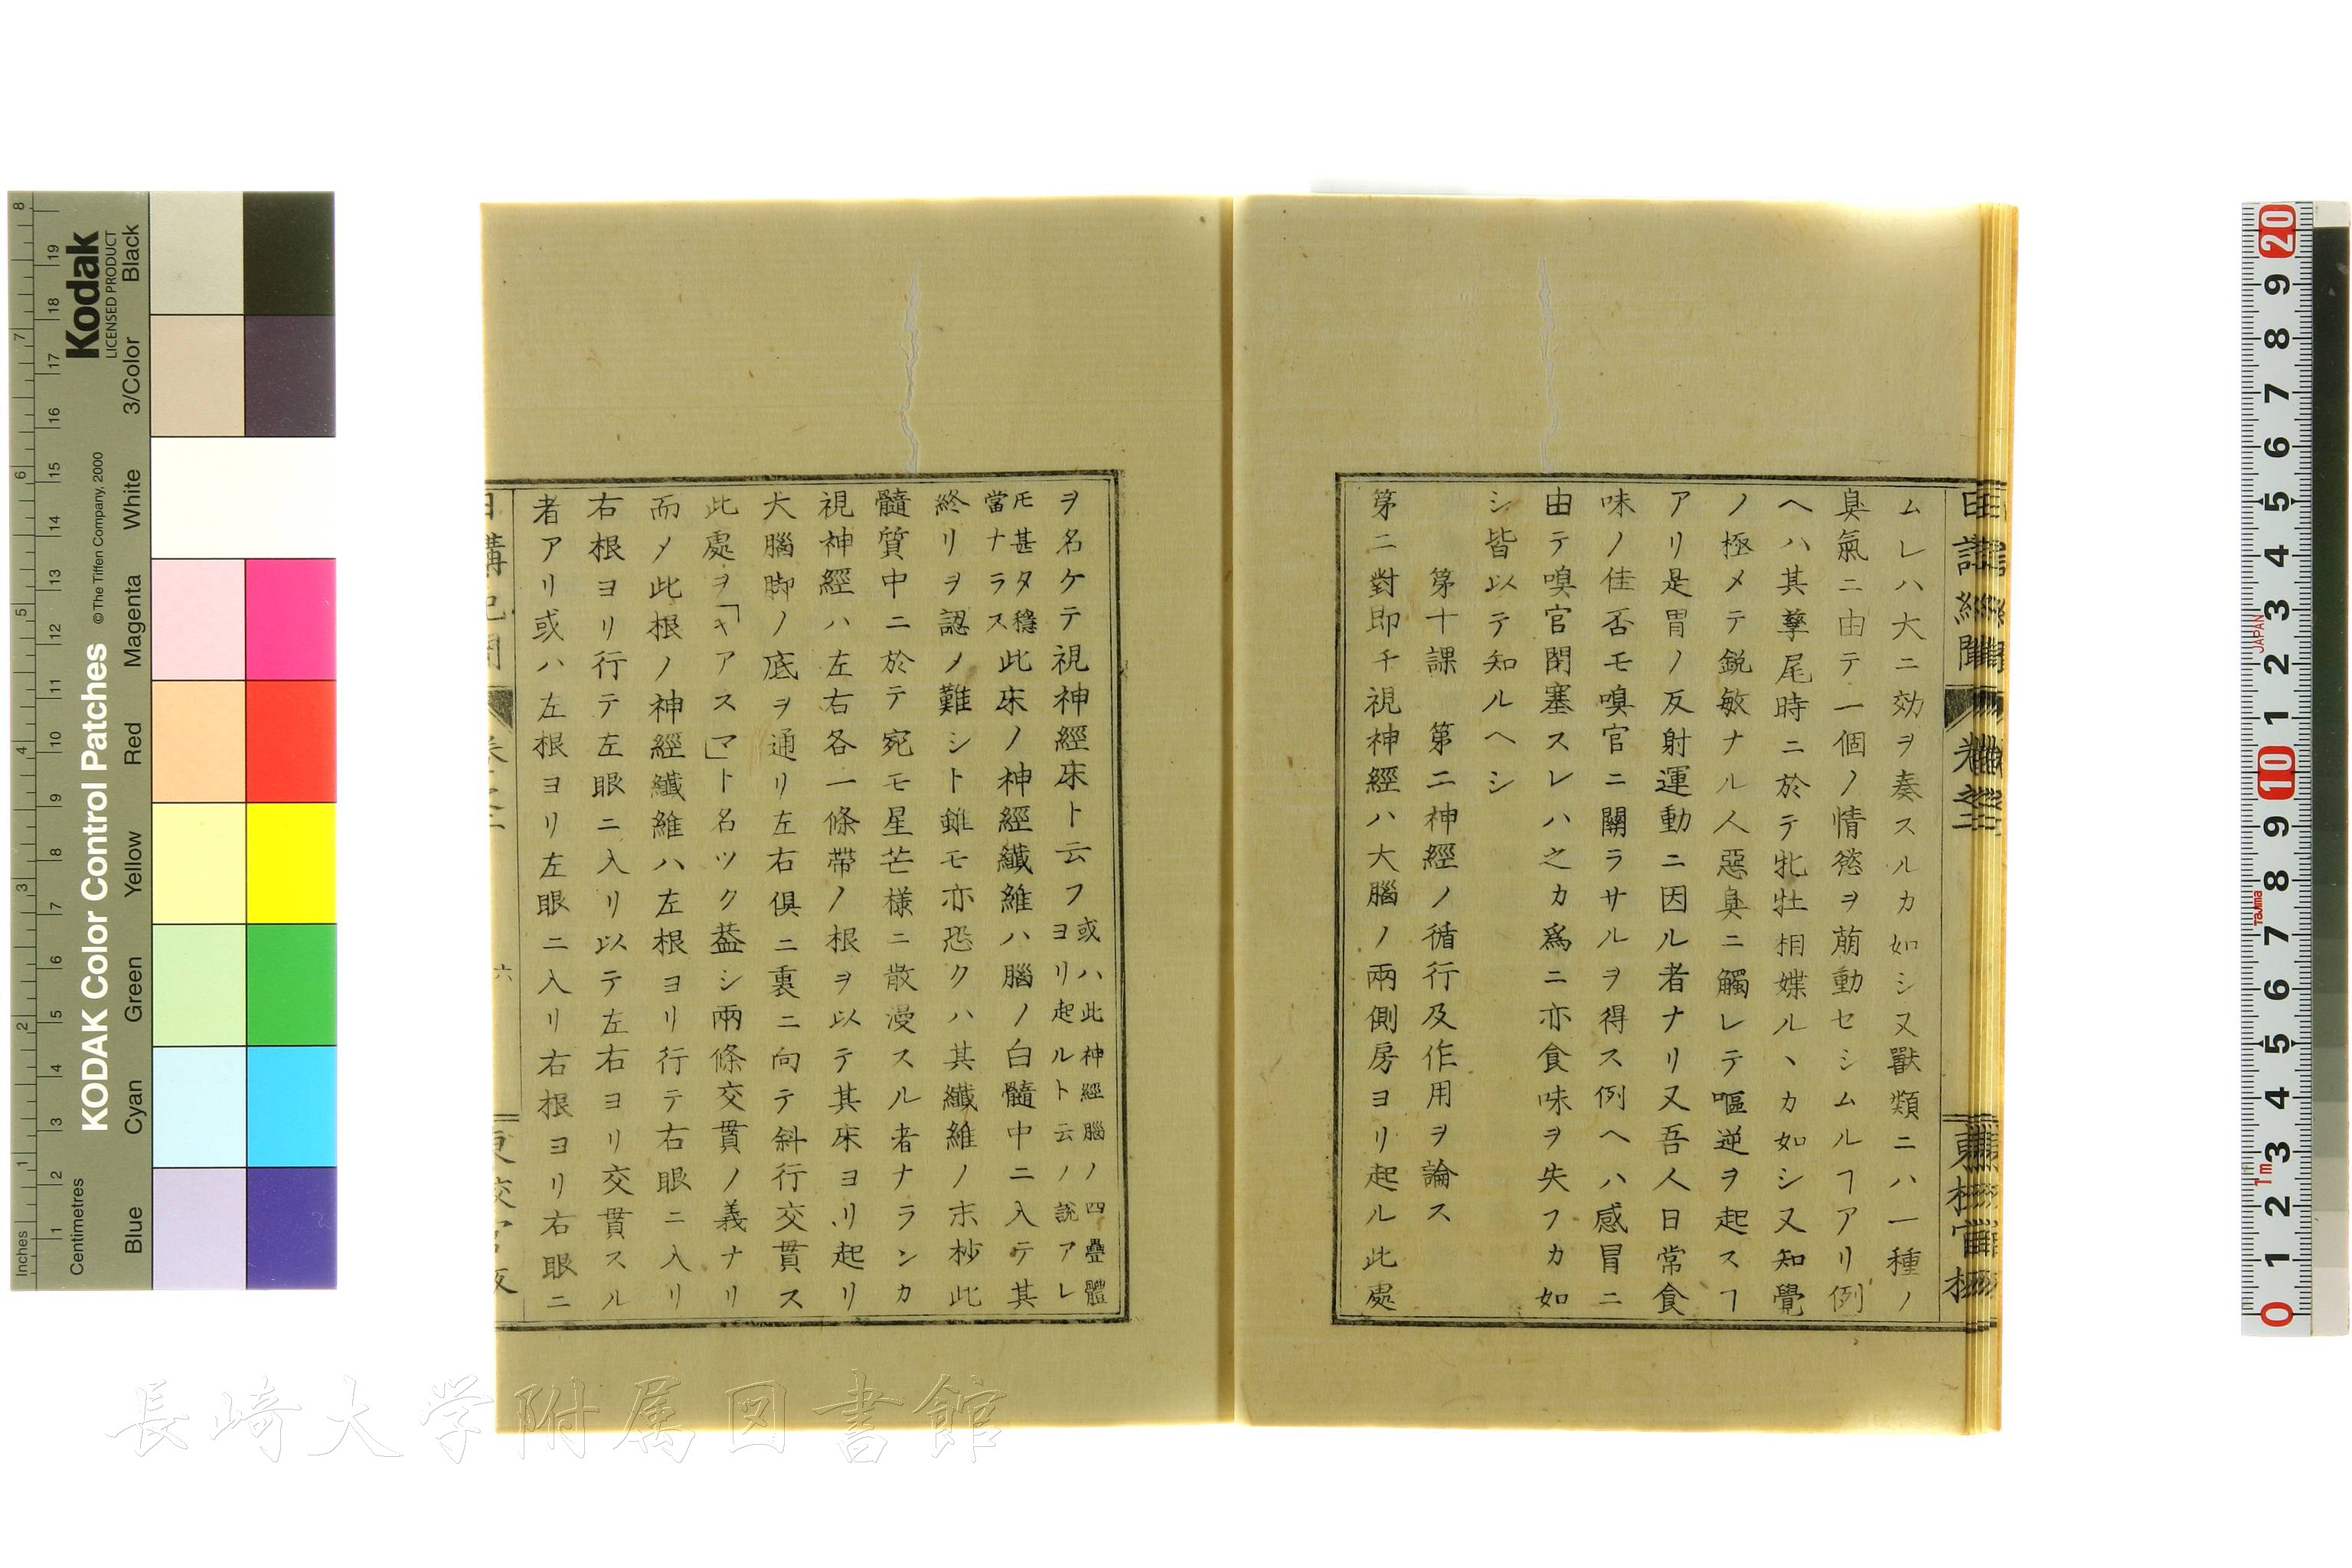 ムレハ大ニ効ヲ奏スルカ如シ又獸類ニハ一種ノ
臭氣ニ由テ一個ノ情慾ヲ萠動セシムルヿアリ例
ヘハ其孳尾時ニ於テ牝牡相媒ルヽカ如シ又知覺
ノ極メテ鋭敏ナル人惡臭ニ觸レテ嘔逆ヲ起スヿ
アリ是胃ノ反射運動ニ因ル者ナリ又吾人日常食
味ノ佳否モ嗅官ニ關ラサルヲ得ス例ヘハ感冒ニ
由テ嗅官閉塞スレハ之カ爲ニ亦食味ヲ失フカ如
シ皆以テ知ルヘシ
第十課　第二神經ノ循行及作用ヲ論ス
第二對即チ視神經ハ大腦ノ兩側房ヨリ起ル此處
ヲ名ケテ視神經床ト云フ
或ハ此神經腦ノ四疊體
ヨリ起ルト云ノ説アレ
𪜈甚タ穩
當ナラス
此床ノ神經纎維ハ腦ノ白髓中ニ入テ其
終リヲ認ノ難シト雖モ亦恐クハ其纎維ノ末杪此
髓質中ニ於テ宛モ星芒様ニ散漫スル者ナランカ
視神經ハ左右各一條帶ノ根ヲ以テ其床ヨリ起リ
大腦脚ノ底ヲ通リ左右倶ニ裏ニ向テ斜行交貫ス
此處ヲ「キアスマ」ト名ツク葢シ兩條交貫ノ義ナリ
而メ此根ノ神經纎維ハ左根ヨリ行テ右眼ニ入リ
右根ヨリ行テ左眼ニ入リ以テ左右ヨリ交貫スル
者アリ或ハ左根ヨリ左眼ニ入リ右根ヨリ右眼ニ
六
KODAK Color Control Patches
© The Tiffen Company, 2000
Kodak
LICENSED PRODUCT
Inches
Centimetres
Blue
Cyan
Green
Yellow
Red
Magenta
White
3/Color
Black
JAPAN
Tajima
1m
長崎大学附属図書館